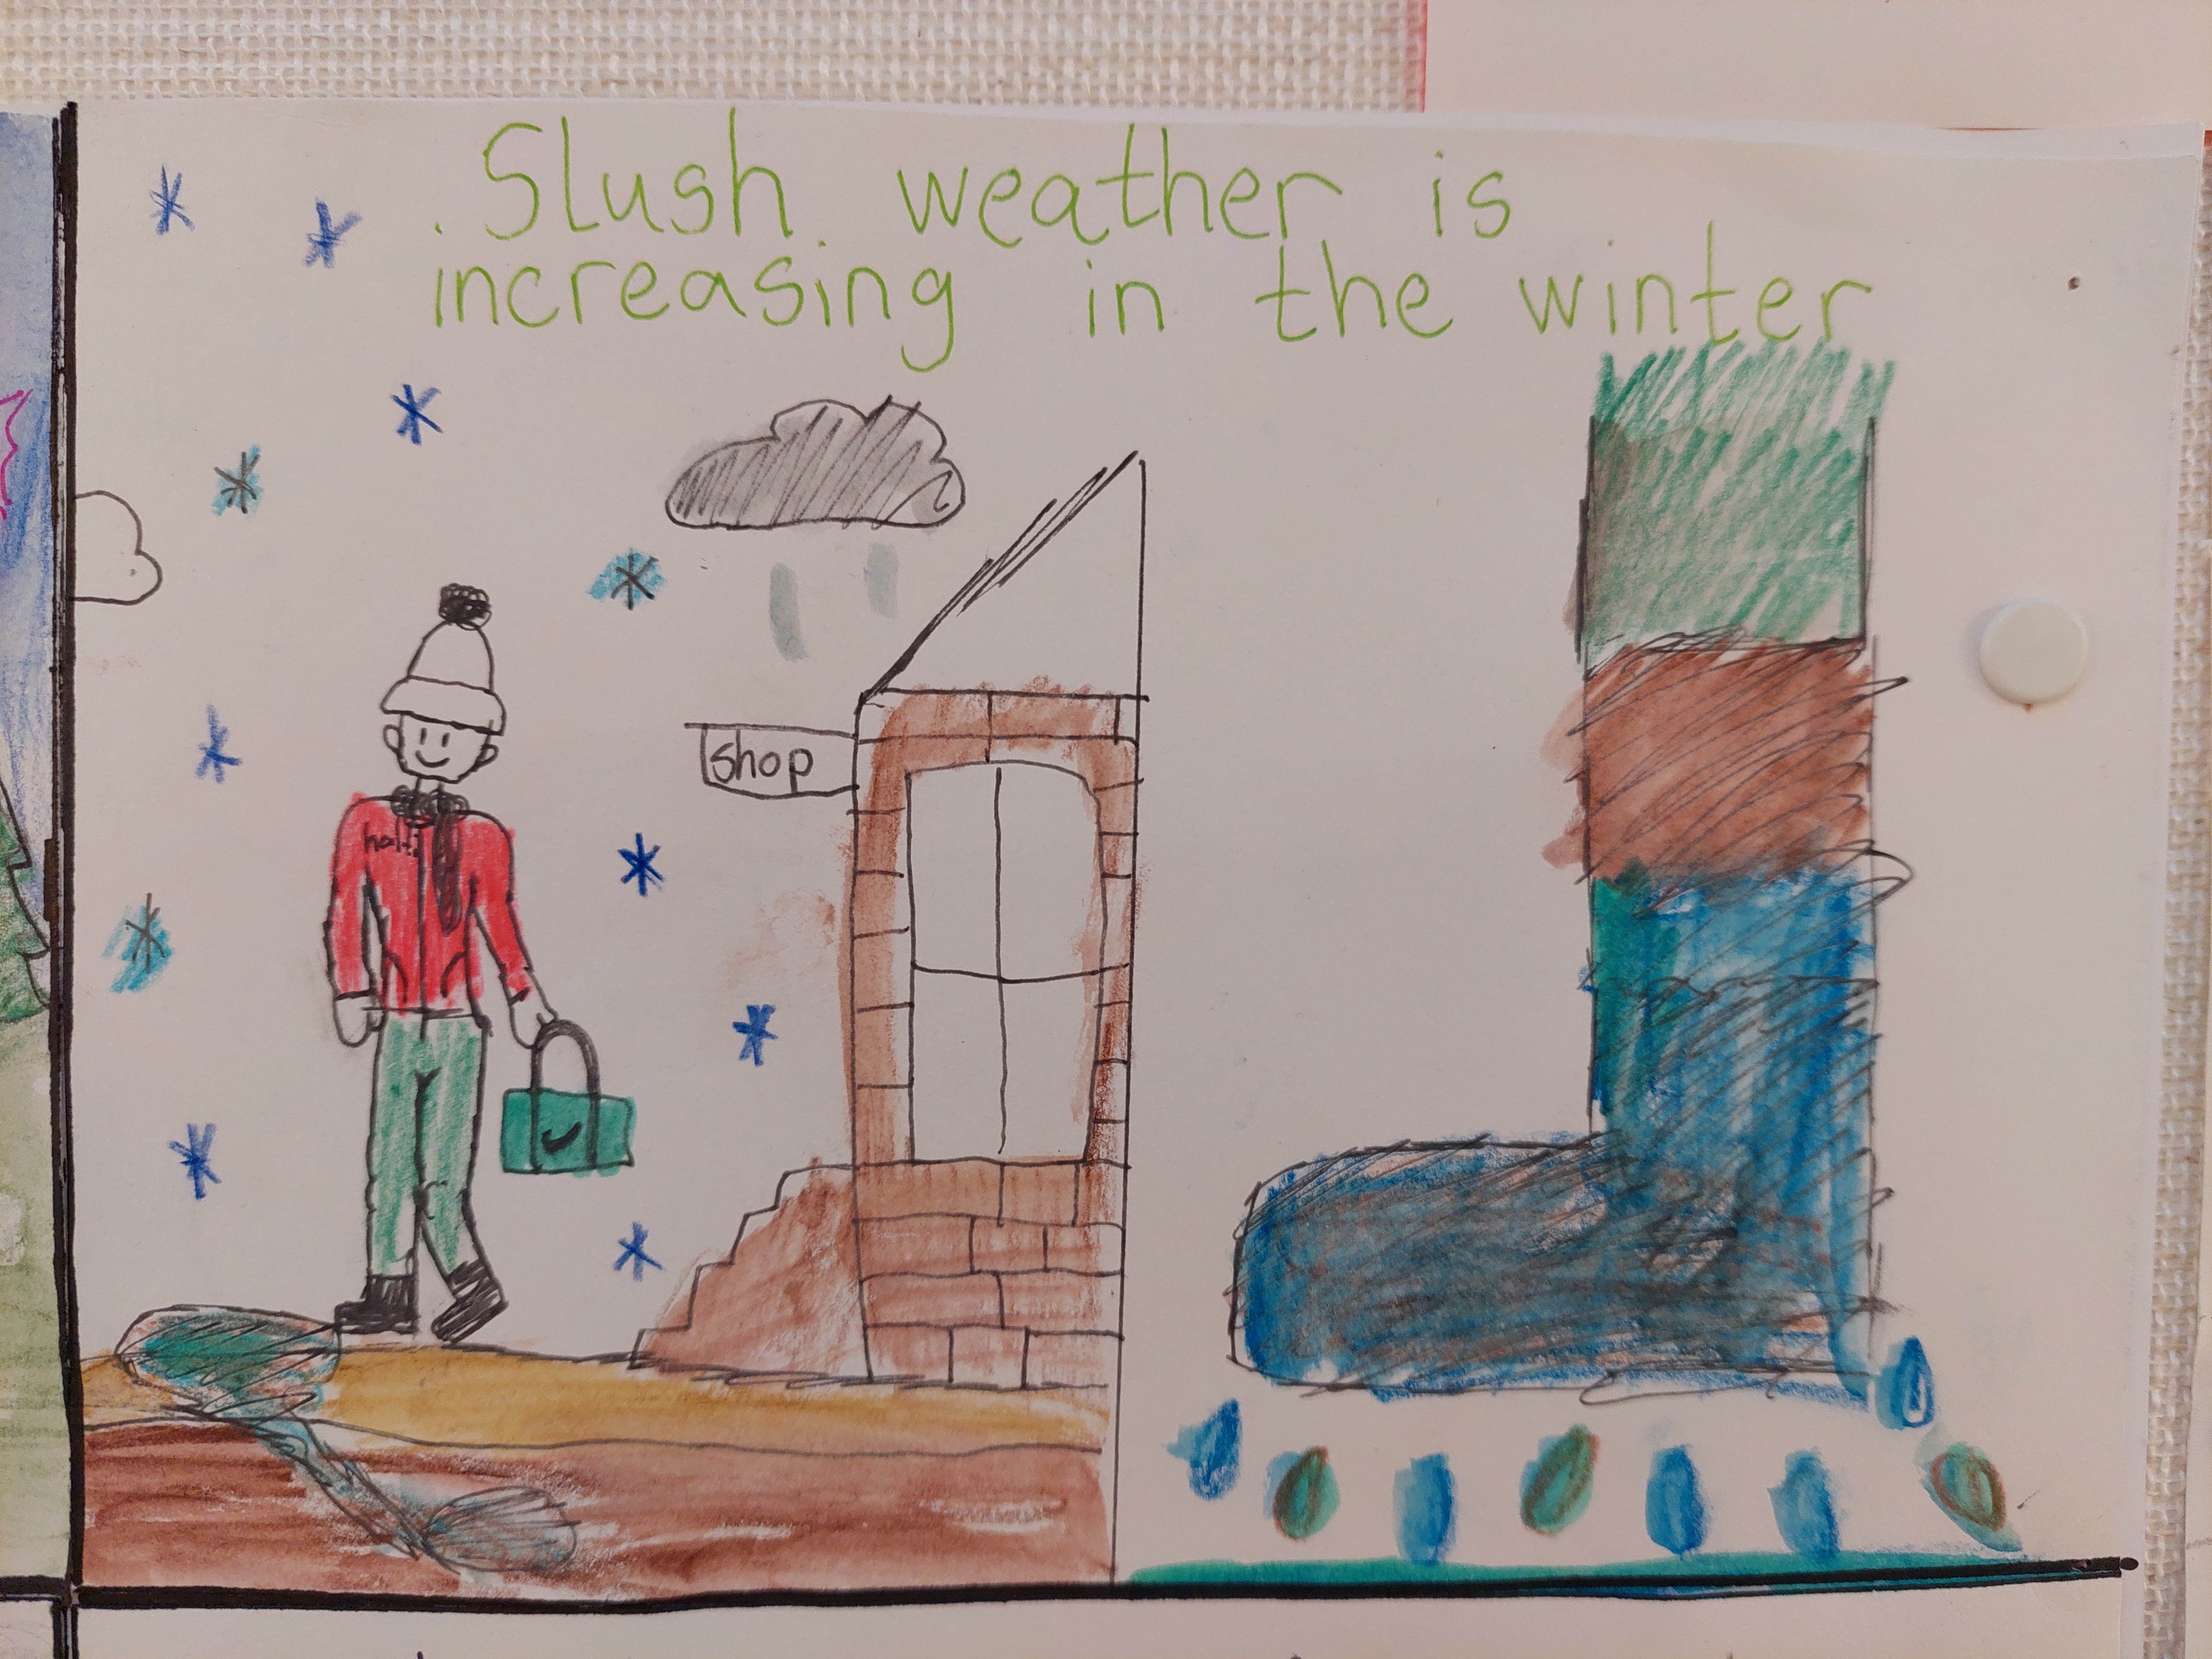 Slush weather is
increasing in the winter
shop
halti